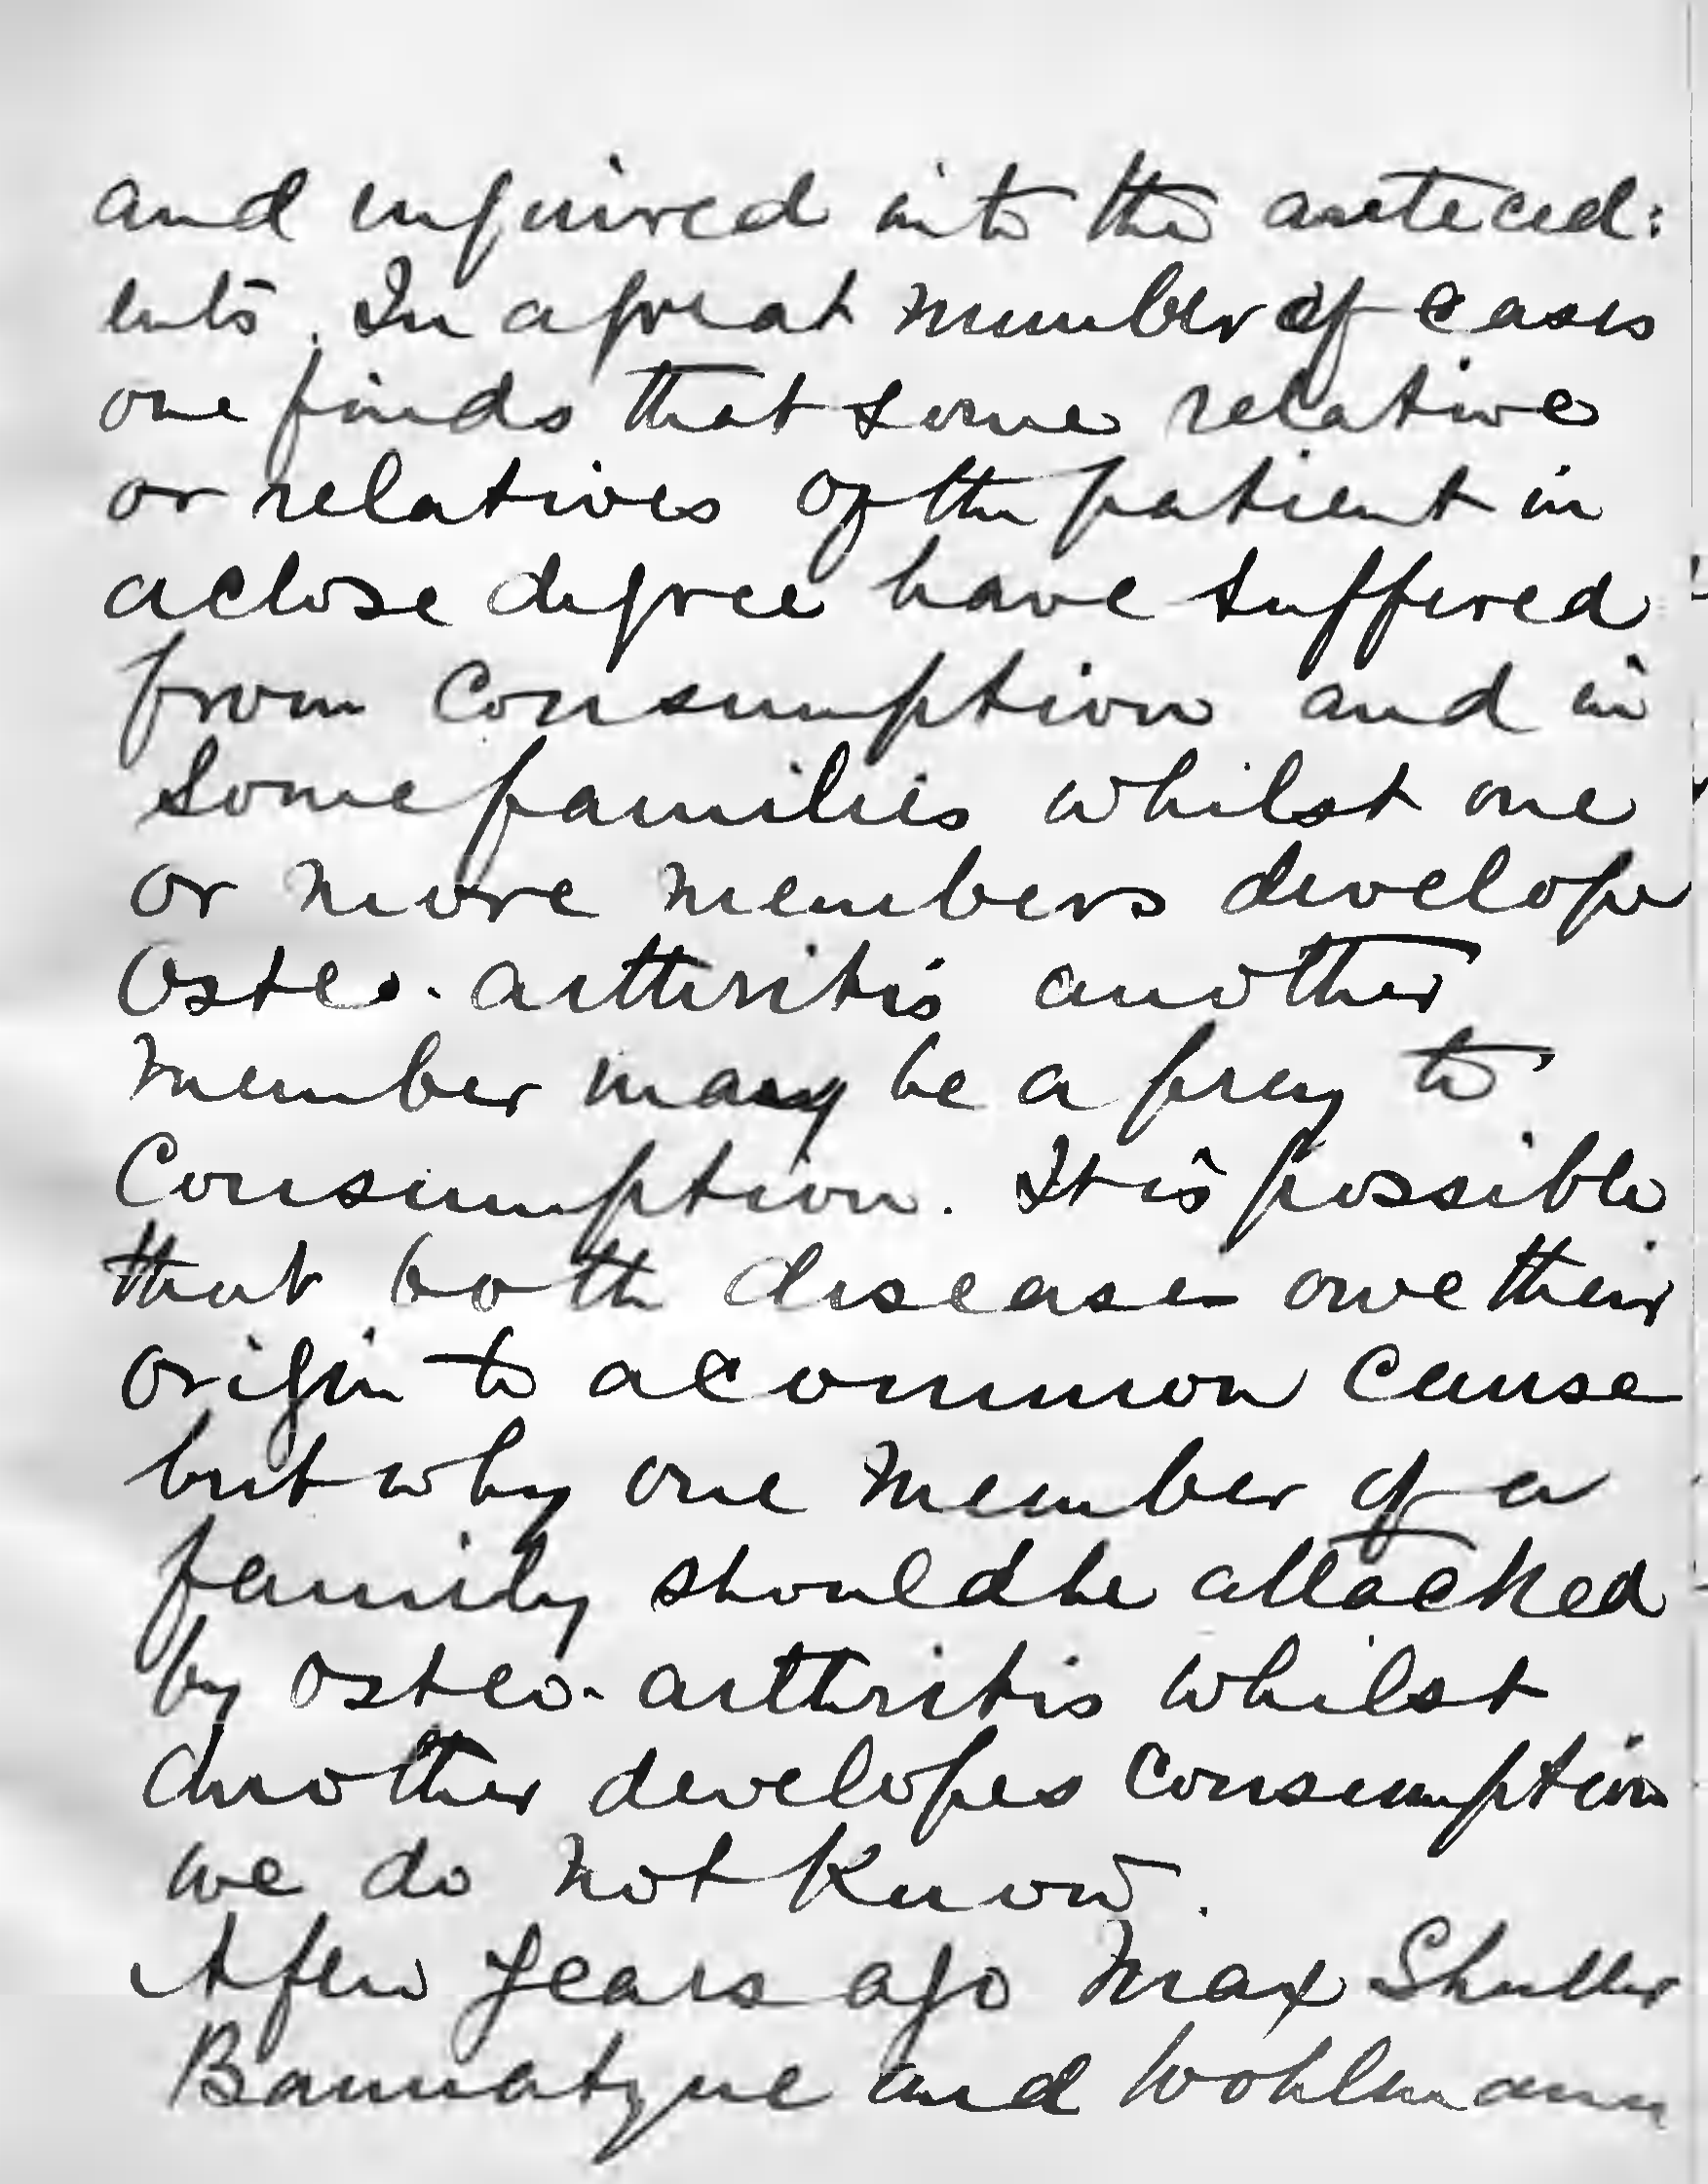 and inquired into the anteced:
ents. In a great number of cases
one finds that some relative
or relatives of the patient in
a close degree have suffered
from Consumption and in
some families whilst one
or more members develope
Osteo-arthritis another
member may be a prey to
Consumption. It is possible
that both diseases owe their
origin to a common cause
but why one member of a
family should be attacked
by osteo-arthritis whilst
another developes consumption
we do not know.
A few years ago Max Shuller
Bannatyne and Wohlmann